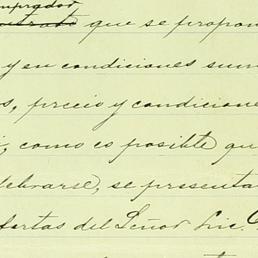 mprador
que se propon
y en condiciones sum
s, precio y condicione
, como es posible qu
lebrarse, se presenta
fertas del Señor Lic.